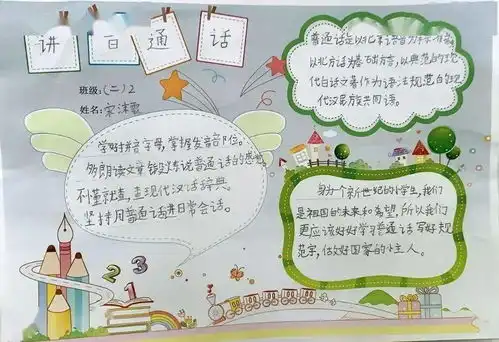 讲
百
通
话
班级:(二)2
姓名:宋沐歌
普通话是以北京语音为标准音,
以北方话为基础方言,以典范的现
代白话文著作为语法规范的现
代汉民族共同语。
学好拼音字母,掌握发音部位。
多朗读文章锻炼说普通话的感觉
不懂就查,查现代汉语辞典。
坚持用普通话进日常会话。
身为一个新世纪的小学生,我们
是祖国的未来和希望,所以我们
更应该好好学习普通话写好规
范字,做好国家的小主人。
2
3
1